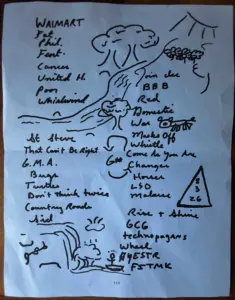 WAIMART
Fat.
Phil.
Fast.
Cancer
United H
Poor
Whirlwind
Join dee
BBB
Red
Domestic
War
Marks Off
Whistle
Come As You Are
Changes
Horses
LSD
Malaise
St Steve
That Can't Be Right
G.M.A.
Bugs
Turtles
Don't think twice
Country Roads
Aid
G
3
26
Rise + Shine
GCG
technopagans
Wheel
AYESTR
FSTMK